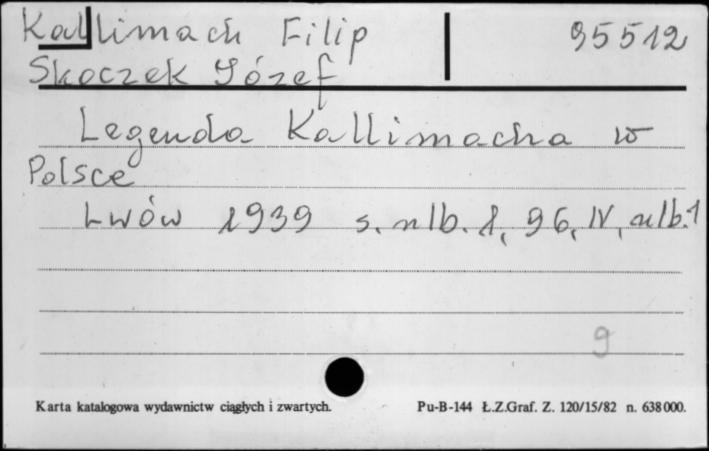 Kallimach Filip 95512
Skoczek Józef
Legenda Kallimacha w
Polsce
Lwów 1939 s. nlb. 1, 96, IV, nlb. 1
9
Karta katalogowa wydawnictw ciągłych i zwartych. Pu-B-144 Ł.Z.Graf. Z. 120/15/82 n. 638000.